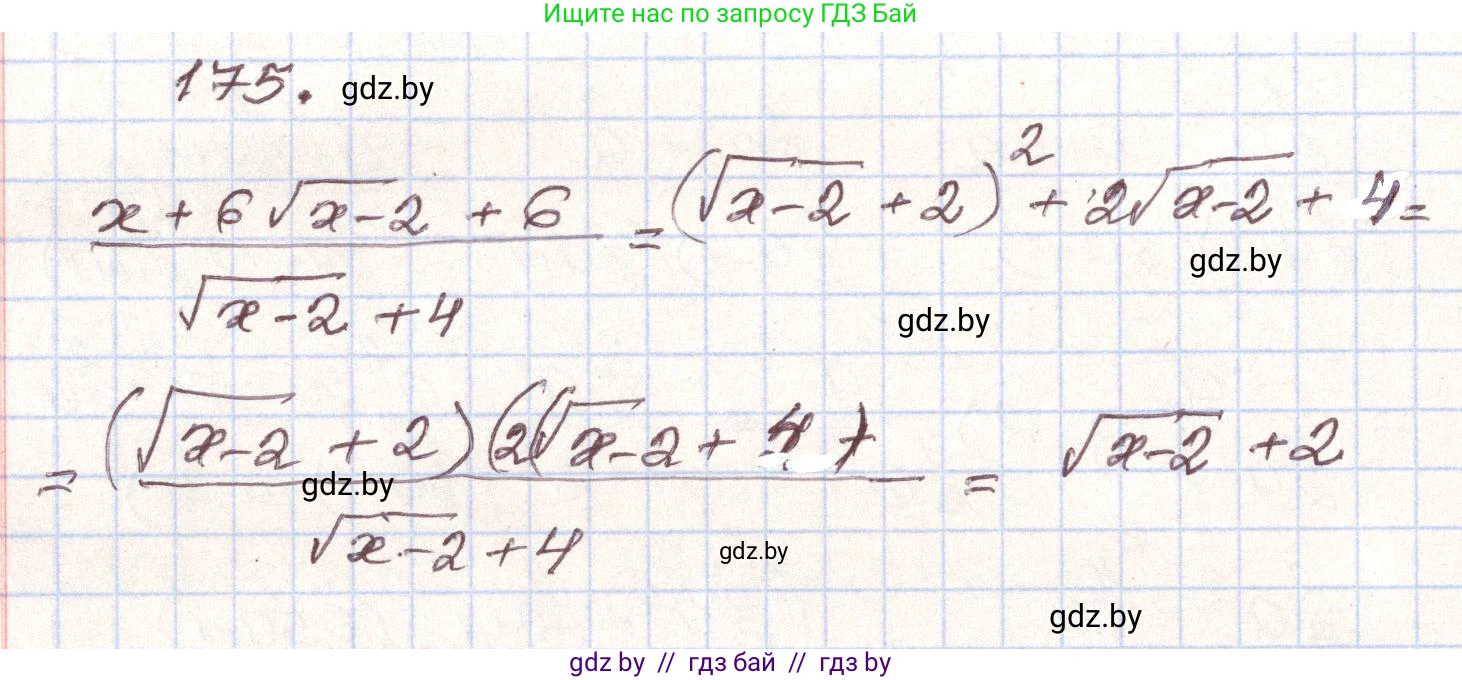 Ищите нас по запросу ГДЗ Бай
175. gdz.by
x + 6√(x-2) + 6 / √(x-2) + 4 = (√(x-2) + 2)² + 2√(x-2) + 4 =
gdz.by
gdz.by
= (√(x-2) + 2)(2(√(x-2) + 4) / √(x-2) + 4 = √(x-2) + 2
gdz.by
gdz.by
gdz.by
gdz by // гдз бай // гдз by